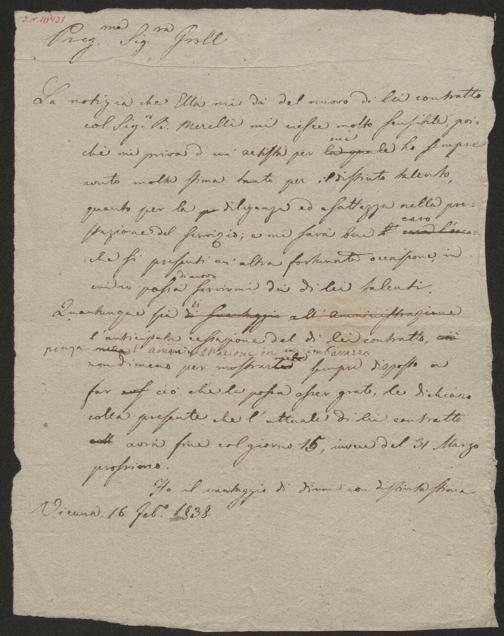 Preg.ma Sig.ra Grill
La notizia che Ella mi dà del nuovo di lei contratto
col Sig.r B. Merelli mi riesce molto sensibile, poi-
chè mi priva d'un artista per cui la quale ho sempre
avuto molta stima tanto per il distinto talento,
quanto per la diligenza ed esattezza nella pre-
stazione del servizio; e mi sarà ben caro
che si presenti un'altra fortunata occasione in
cui io possa servirmi di nuovo di lei talenti.
Quantunque sia di svantaggio all'amministrazione
l'anticipata cessazione del di lei contratto,
amministrazione in imbarazzo
nondimeno per mostrarle sempre disposto a
far ciò che le possa esser grato, le dichiaro
colla presente che l'attuale di lei contratto
avrà fine col giorno 15, invece del 31 Marzo
prossimo.
Ho il vantaggio di dirmi con distinta stima
Vienna 16 Feb.o 1838